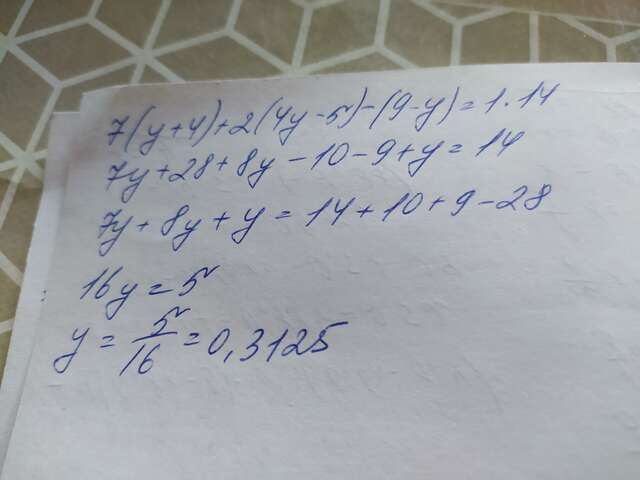 7(y+4)+2(4y-5)-(9-y)=1·14
7y+28+8y-10-9+y=14
7y+8y+y=14+10+9-28
16y=5
y=5/16=0,3125